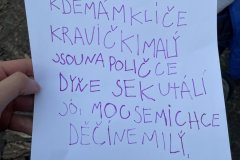 KDEMÁMKLÍČE
KRAVIČKIMALÝ
JSOUNAPOLIČCE
DÝŇE SEKUTÁLÍ
JÓ, MOCSEMICHCE
DĚČÍNEMILÝ,